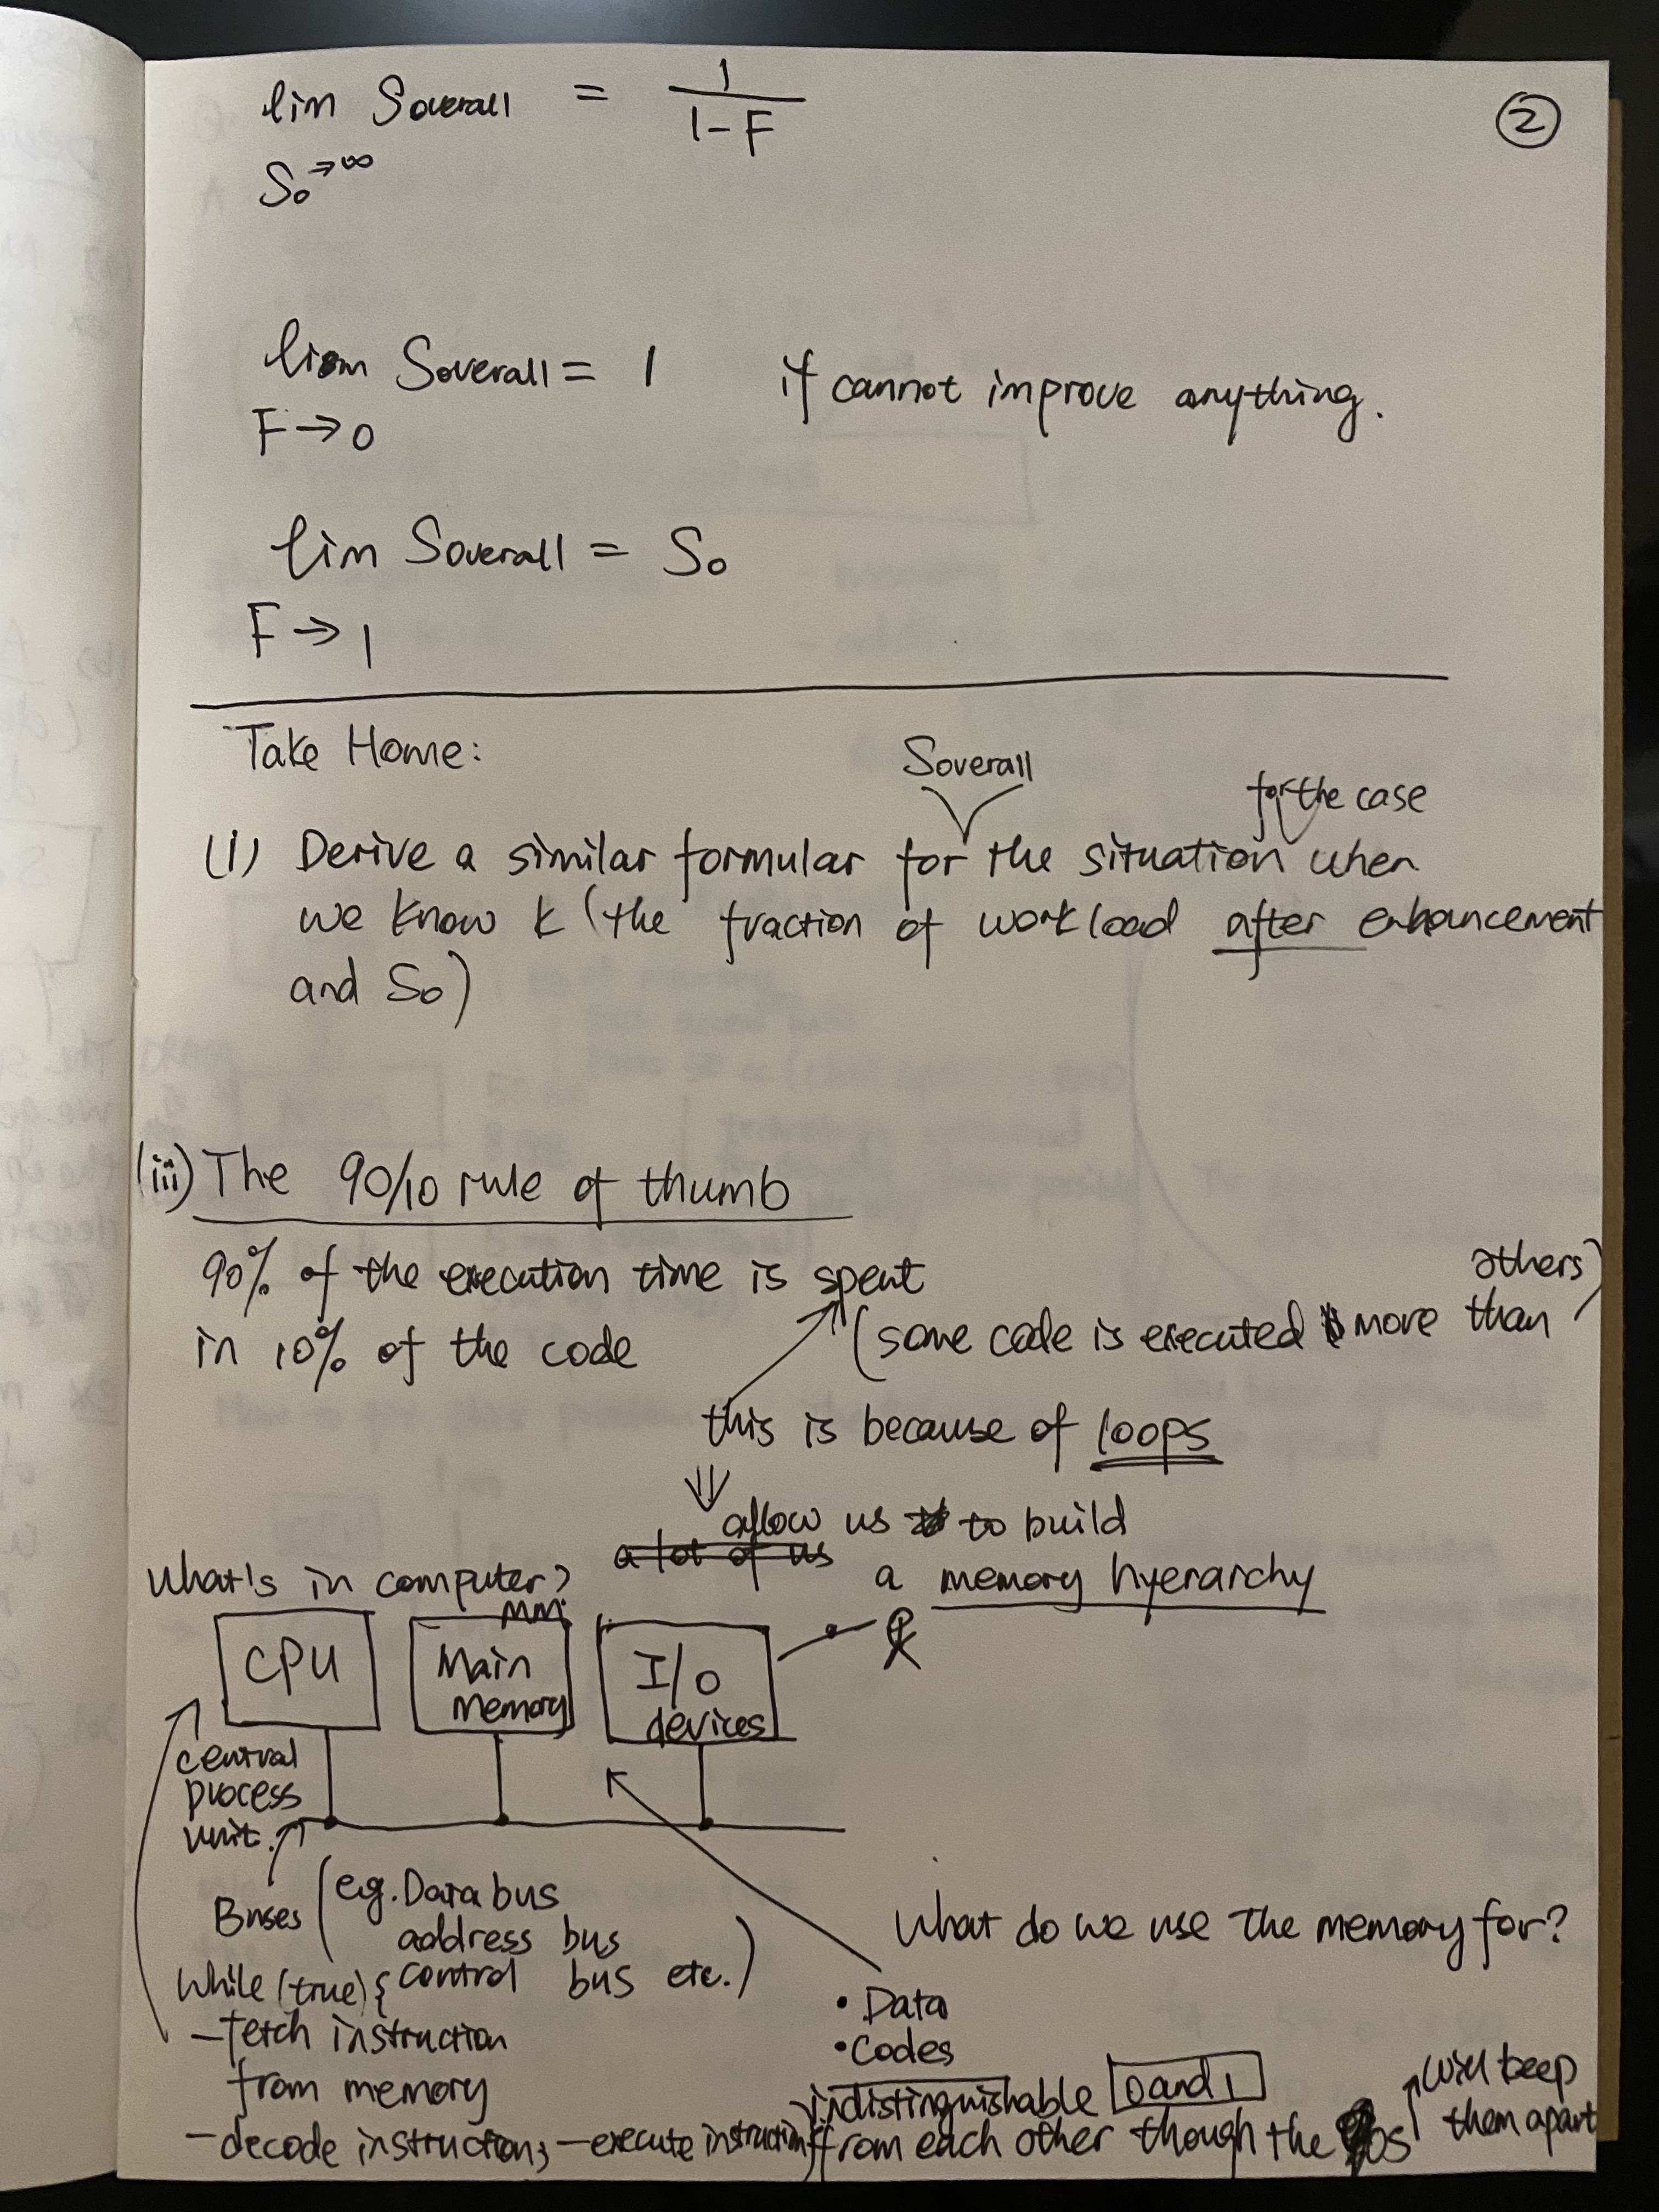 ②
lim Soverall = 1/(1-F)
So→∞
lim Soverall = 1 if cannot improve anything.
F→0
lim Soverall = So
F→1
Take Home:
Soverall
for the case
(i) Derive a similar formular for the situation when
we know k (the fraction of workload after enhancement
and So)
(ii) The 90/10 rule of thumb
90% of the execution time is spent
in 10% of the code
(some code is executed more than
others)
this is because of loops
⇓
allow us to build
a lot of us
a memory hyerarchy
What's in computer?
CPU
MM.
Main
Memory
I/O
devices
central
process
unit.
Buses (e.g. Data bus
address bus
control bus etc.)
While (true) {
- fetch instruction
from memory
- decode instruction; - execute instruction}
What do we use the memory for?
• Data
• Codes
indistinguishable 0 and 1
from each other though the os
will keep
them apart